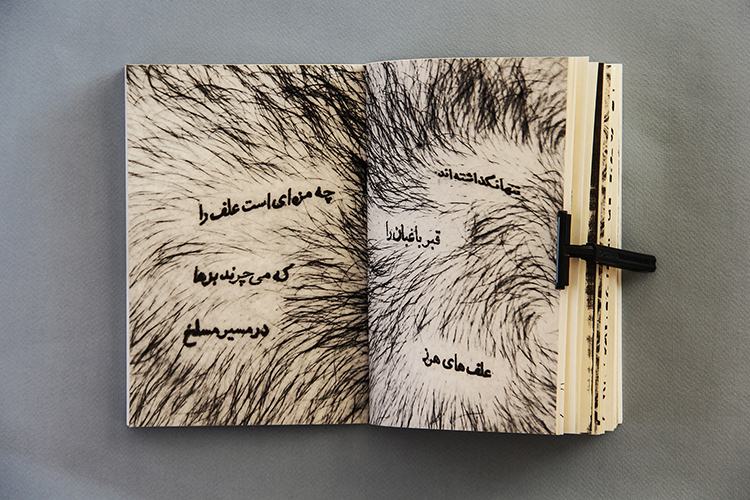 تنها نگذاشته‌اند
قبر باغبان را
علف های هرز
چه مزه‌ای است علف را
که می‌چرند بزها
در مسیر مسلخ